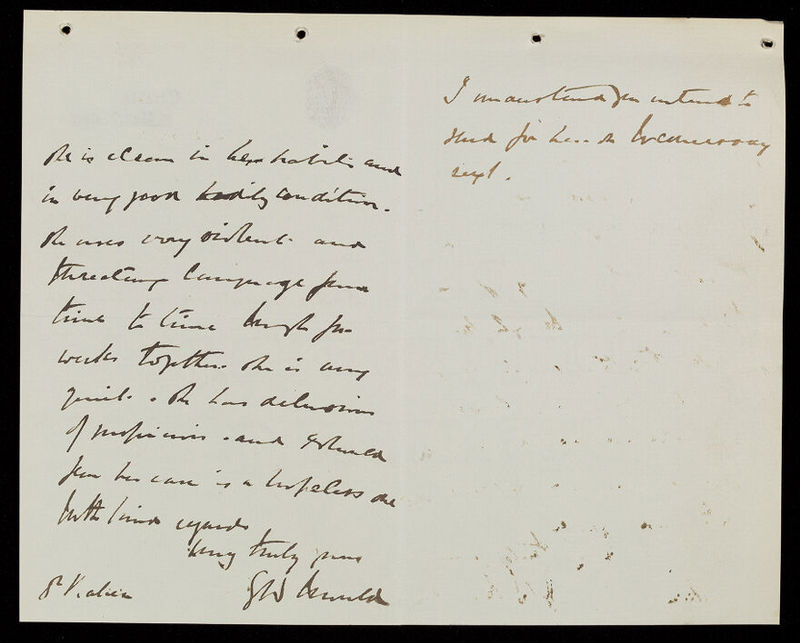 She is clean in her habits and
in very good bodily condition.
She uses very violent and
threatning language from
time to time though for
weeks together she is very
quiet. She has delusions
of suspicion. and I should
fear her case is a hopeless one
With kind regards
Very truly yours
Dr
I understand you intend to
send for her on Wednesday
next.